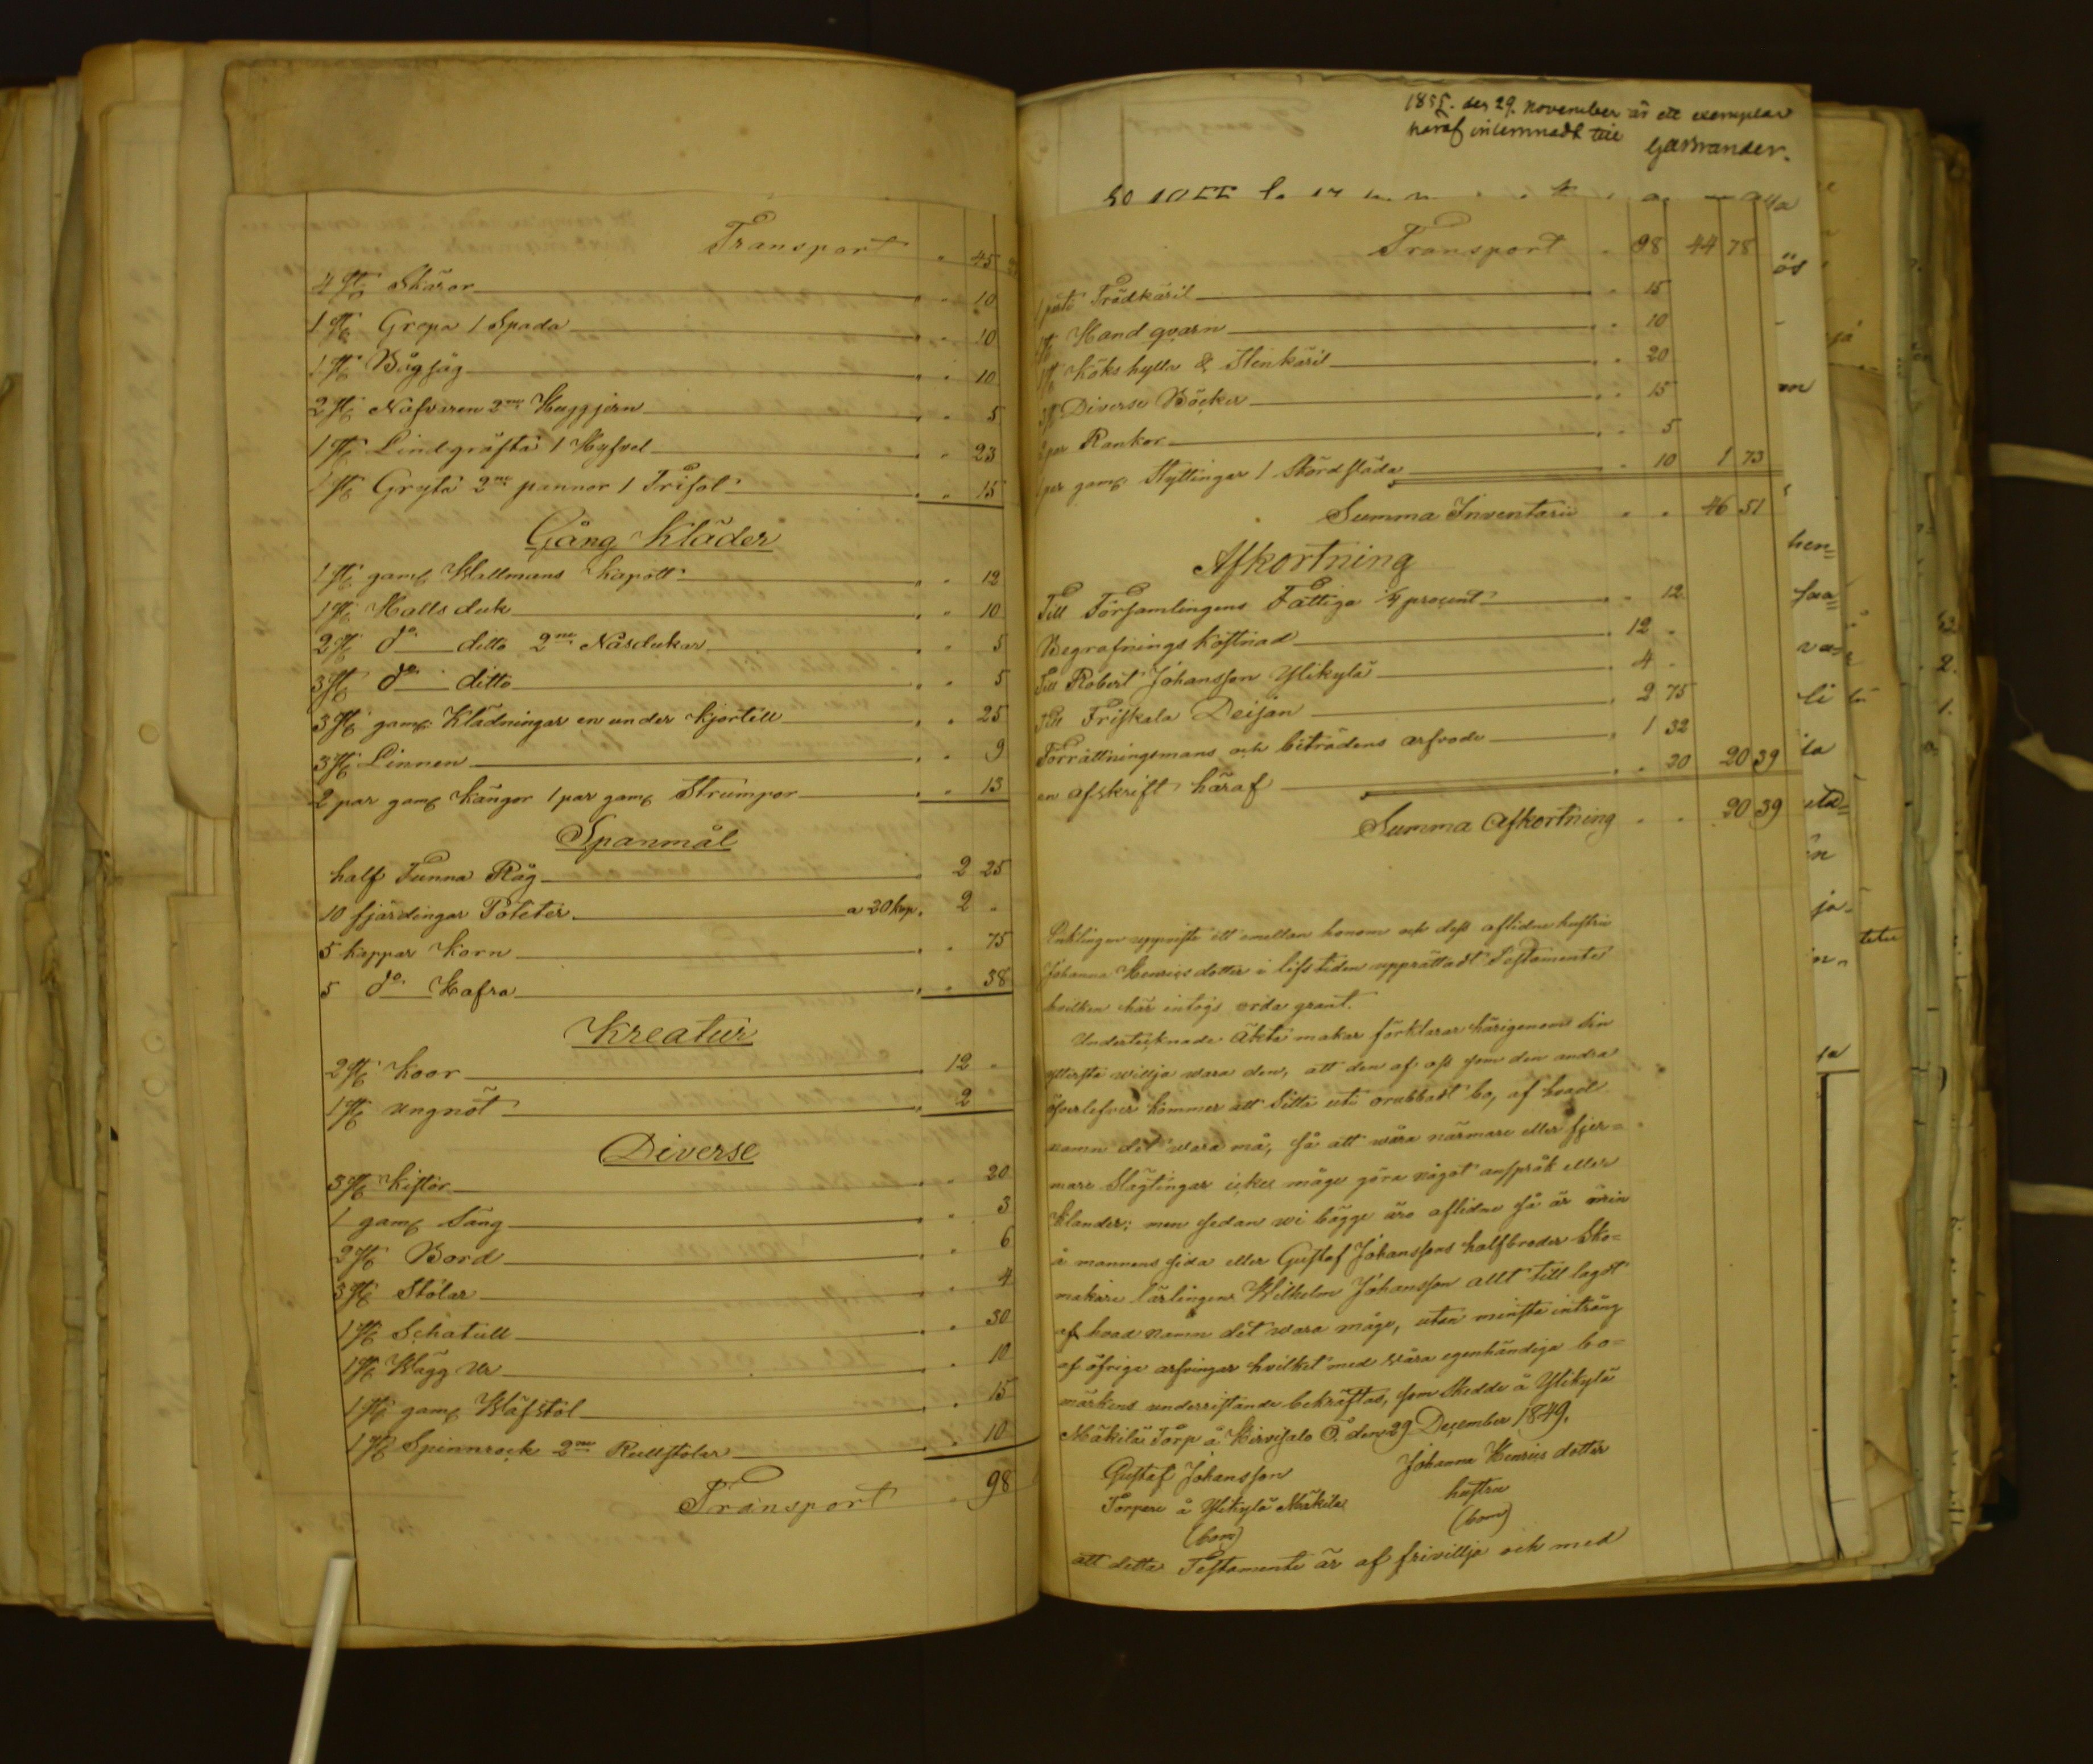 Transport " 45
4 st; Skäror " " 10
1 st; Grepa 1 Spada " " 10
1 st; Bågsåg " " 10
2 st; Nafvaren 2ne Huggjern " " 5
1 st; Lindgräfta 1 Hyfvel " " 23
1 st; Gryta 2ne pannor 1 Trifot " " 15
Gång Kläder
1 st; gaml Wallmans Kapott " " 12
1 st; Halls duk " " 10
2 st; do ditto 2ne Näsdukar " " 5
3 st; do ditto " " 5
3 st; gaml: Klädningar en under kjortell " " 25
3 st; Linnen " " 9
2 par gaml Kängor 1 par gaml Strumpor " " 13
Spanmål
half Tunna Råg " 2 25
10 fjärdingar Poteter a 20 kop. 2 "
5 kappar Korn " " 75
5 do Hafra " " 38
Kreatur
2 st; Koor 12 "
1 st; ungnöt " 2
Diverse
3 st; Kistor " " 20
1 gaml Säng " " 3
2 st; Bord " " 6
3 st; Stolar " " 4
1 st; Schatull " " 30
1 st; Wägg Ur " " 10
1 st; gaml Wäfstol " " 15
1 st; Spinnrock 2ne Rullstolar " " 10
Transport " 98
1855. den 29. november är ett exemplar
häraf inlemnadt till
Transport " 98 44 78
1 parti Trädkäril " " 15
1 st; Handqvarn " " 10
1 st; Kökshylla & Stenkäril " " 20
3 st; Diverse Böcker " " 15
2 par Rankor " " 5
1 par gaml: Styttingar 1 Skördsläda " " 10 1 73
Summa Inventarii " " 46 51
Afkortning
Till Församlingens Fattiga 1/4 procent " " 12
Begrafnings kostnad " 12 "
Till Robert Johansson Ylikylä " 4 "
Till Friskala Deijan " 2 75
Förrättningsmans och biträdens arfvode " 1 32
en afskrift häraf " " 20 20 39
Summa Afkortning " " 20 39
Enklingen uppviste ett emellan honom och dess aflidne hustru
Johanna Henricsdotter i lifstiden upprättadt Testamente
hvilken här intogs orda grant.
Undertecknade Äkta makar förklarar härigenom sin
yttersta willja wara den, att den af oss som den andra
öfverlefver kommer att Sitta uti orubbadt bo, af hvad
namn det wara må, så att wåra närmare eller fjer=
mare Slägtingar icke måge göra något anspråk eller
Klander; men sedan wi bägge äro aflidne så är min
å mannens sida eller Gustaf Johanssons halfbroder Sko=
makare lärlingen Wilhelm Johansson allt till lagdt
af hvad namn det wara måge, utan minsta intrång
af öfriga arfvingar hvilket med wåra egenhändiga bo=
märkens underristande bekräftas, som Skedde å Ylikylä
Mäkilä Torp å Hirvisalo Ö. den 29 December 1849.
Gustaf Johansson Johanna Henrics dotter
Torpare å Ylikylä Mäkilä hustru
(bom) (bom)
att detta Testamente är af frivillje och med